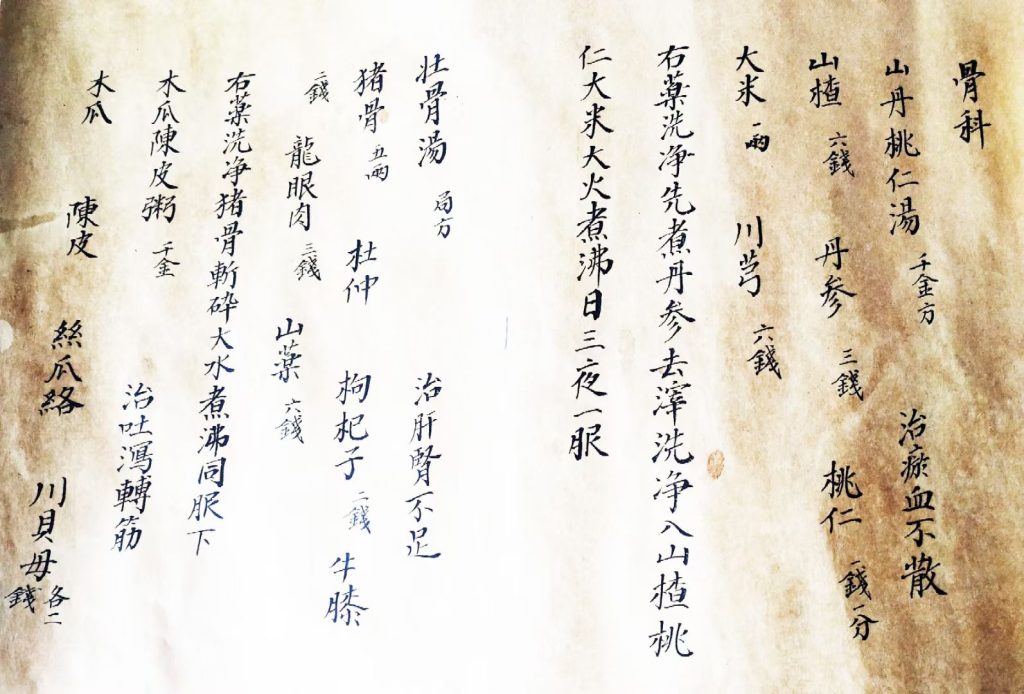 骨科
山丹桃仁湯 千金方 治瘀血不散
山楂 六錢 丹参 三錢 桃仁 一錢一分
大米 一兩 川芎 六錢
右藥洗净先煮丹参去滓洗净入山楂桃
仁大米大火煮沸日三夜一服
壮骨湯 局方 治肝腎不足
猪骨 五兩 杜仲 枸杞子 二錢 牛膝
二錢 龍眼肉 三錢 山藥 六錢
右藥洗净猪骨斬碎大水煮沸同服下
木瓜陳皮粥 千金 治吐瀉轉筋
木瓜 陳皮 絲瓜絡 川貝母 各二錢